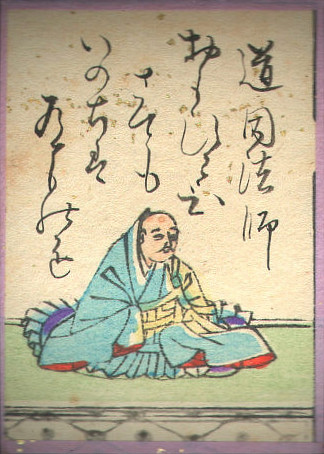 道因法師
おもひわひ
さても
いのちは
有ものを